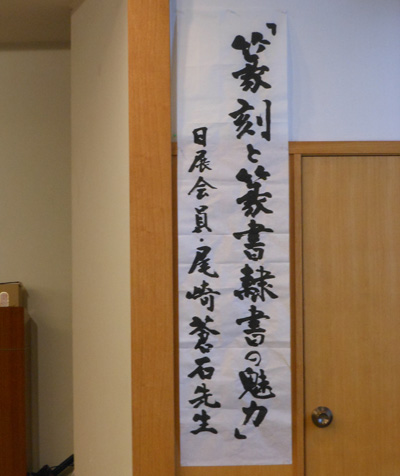 「篆刻と篆書隷書の魅力」
日展会員・尾崎蒼石先生